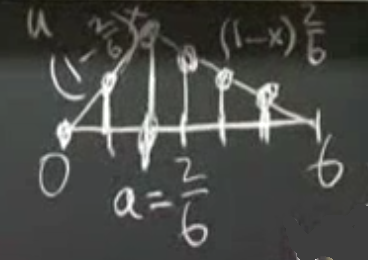 u
(1 - 2/6)x
(1-x) 2/6
0
6
a = 2/6